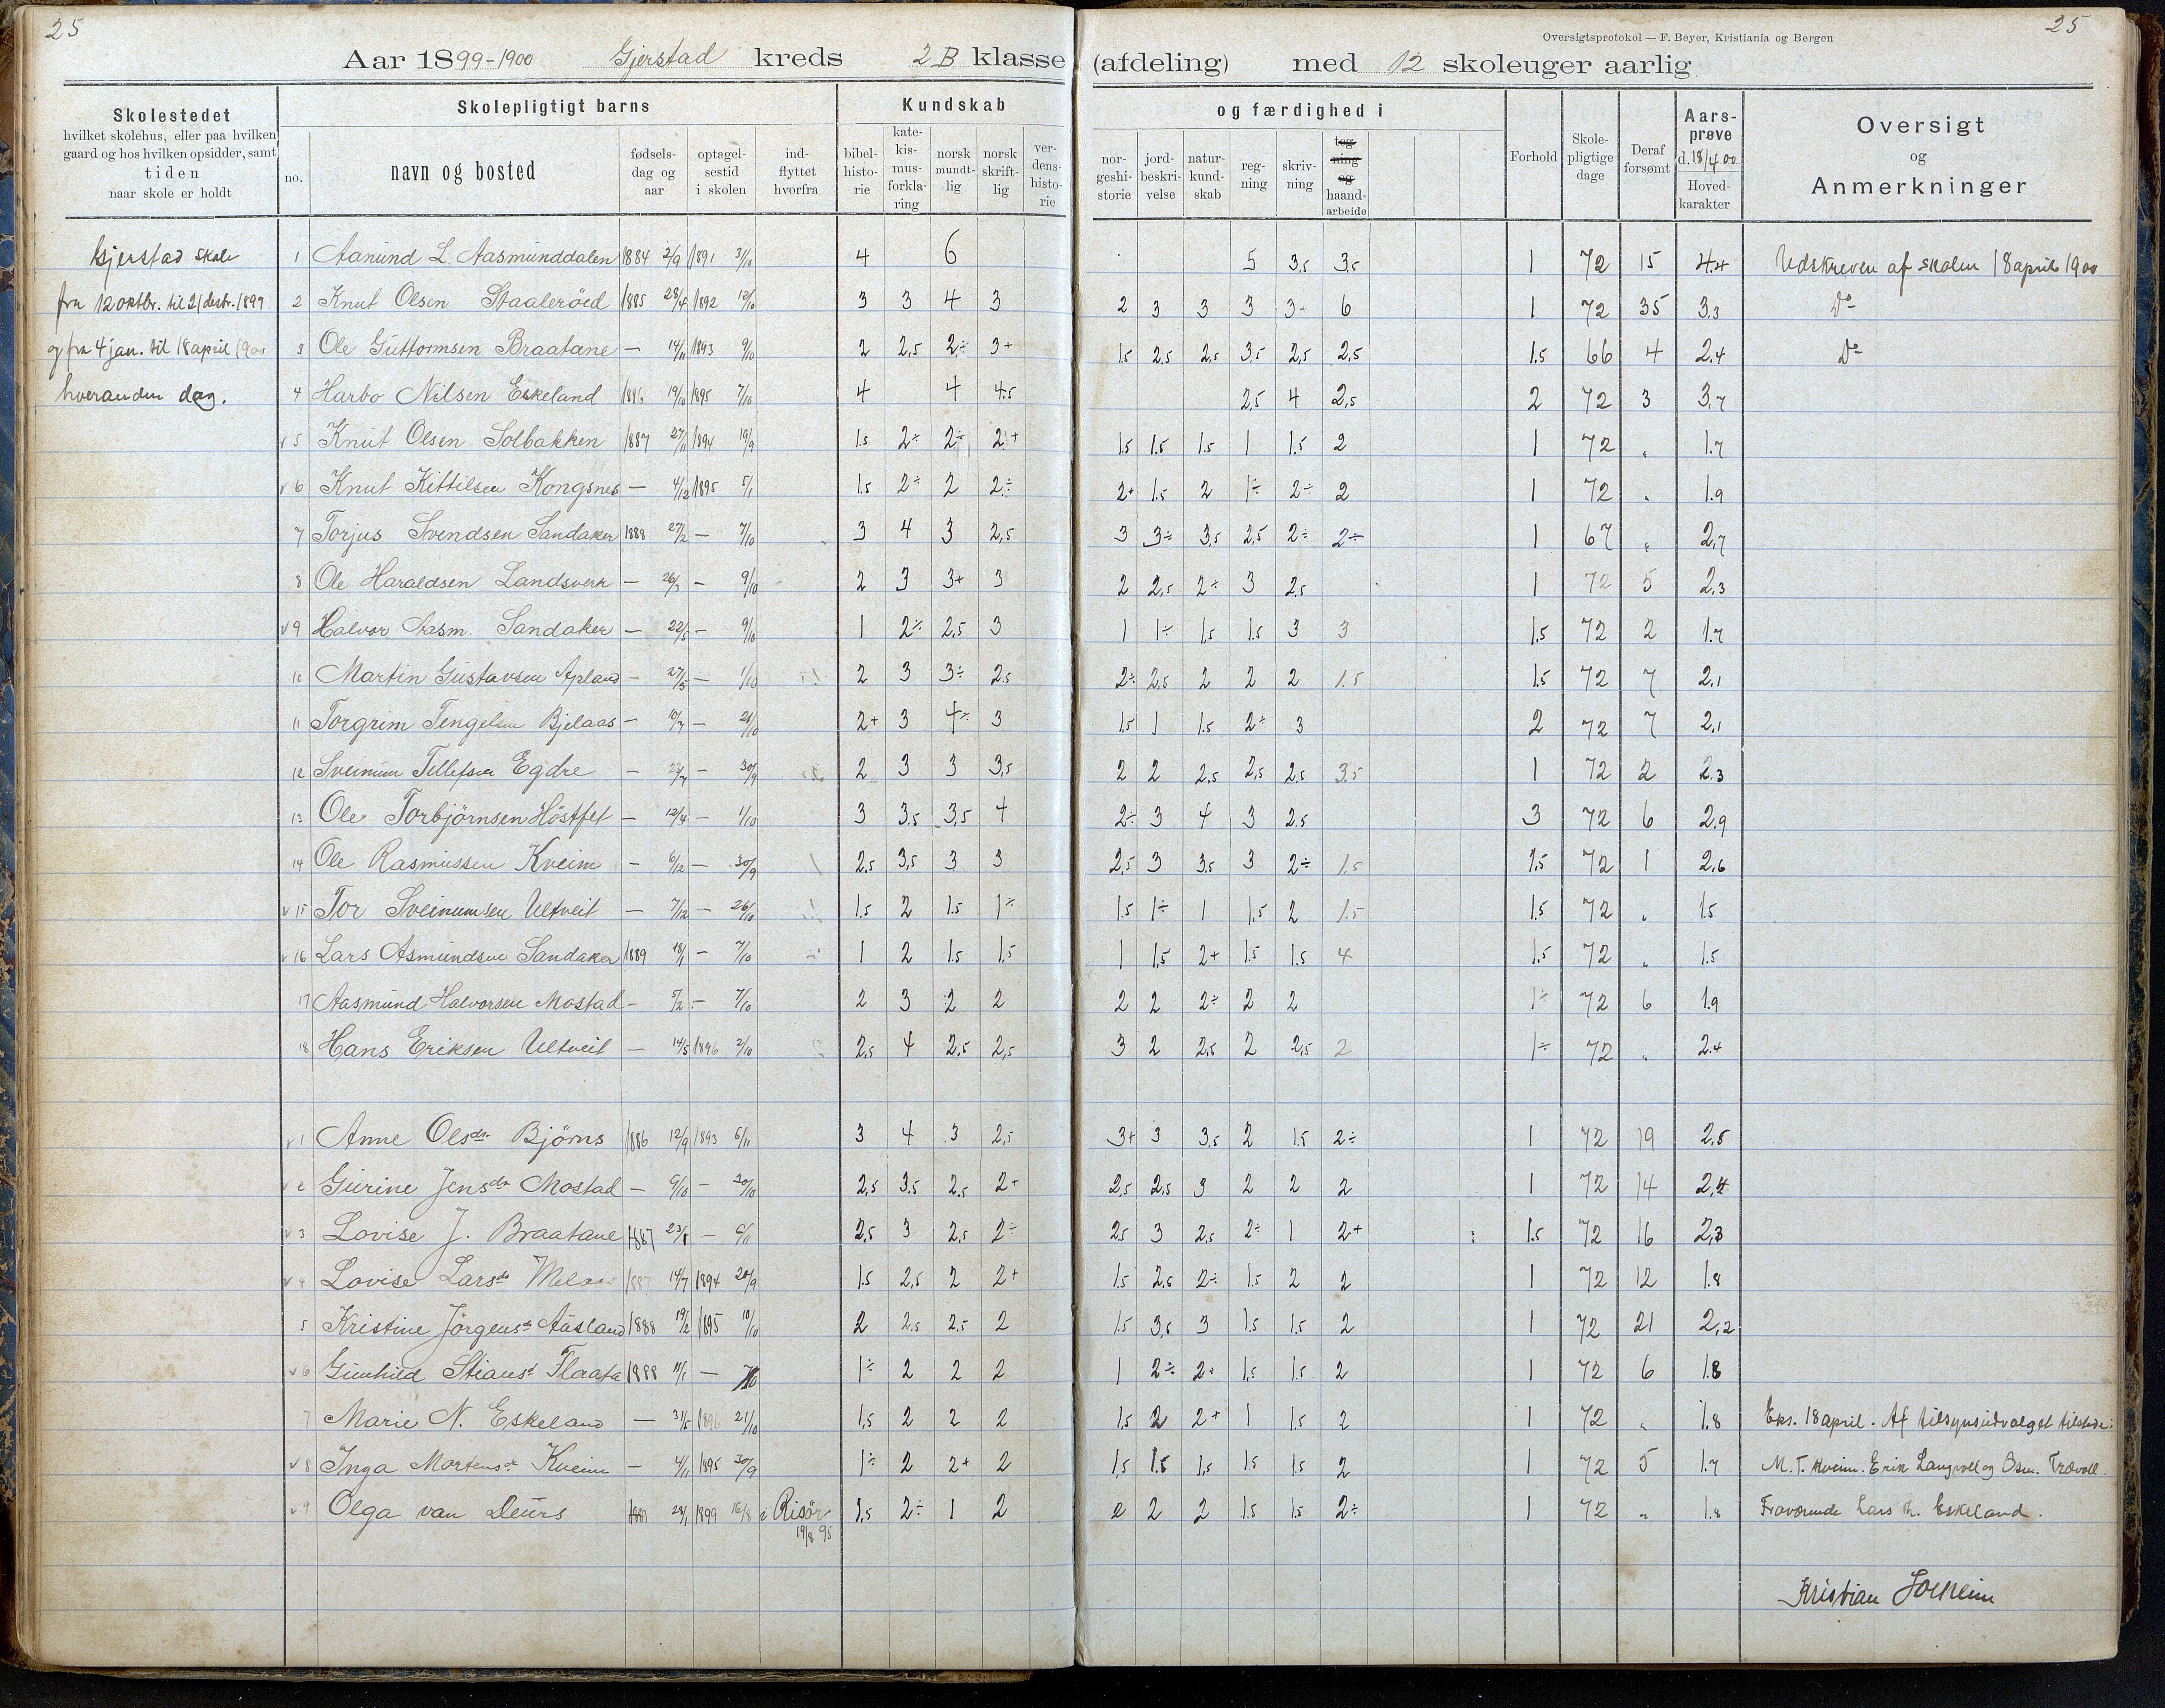 25
25
Oversigtsprotokol — F. Beyer, Kristiania og Bergen
Aar 1899-1900 Gjerstad kreds 2 B klasse (afdeling) med 12 skoleuger aarlig
Skolestedet
hvilket skolehus, eller paa hvilken
gaard og hos hvilken opsidder, samt
tiden
naar skole er holdt
Skolepligtigt barns
no.
navn og bosted
fødsels-dag og aar
optagel-sestid i skolen
ind-flyttet hvorfra
Kundskab og færdighed i
bibel-histo-rie
kate-kis-mus-forkla-ring
norsk mundt-lig
norsk skrift-lig
ver-dens-histo-rie
nor-geshi-storie
jord-beskri-velse
natur-kund-skab
reg-ning
skriv-ning
teg-ning og haand-arbeide
Forhold
Skole-pligtige dage
Deraf forsømt
Aars-prøve d. 18/4 00
Hoved-karakter
Oversigt og Anmerkninger
Gjerstad skole
fra 12 oktbr. til 21 desbr. 1899
og fra 4 jan. til 18 april 1900
hveranden dag.
1 Aanund L. Aasmunddalen 1884 2/9 1891 31/10 4 6 5 3,5 3,5 1 72 15 4.4 Udskreven af skolen 18 april 1900
2 Knut Olsen Staaleröed 1885 28/4 1892 12/10 3 3 4 3 2 3 3 3 3+ 6 1 72 35 3,3 Do
3 Ole Guttormsen Braatane — 14/11 1893 9/10 2 2,5 2÷ 3+ 1.5 2,5 2,5 3,5 2,5 2,5 1.5 66 4 2.4 Do
4 Harbo Nilsen Eskeland 19/10 1895 7/10 4 4 4.5 2,5 4 2,5 2 72 3 3,7
v 5 Knut Olsen Solbakken 1887 27/11 1894 19/9 1.5 2÷ 2÷ 2+ 1.5 1.5 1.5 1 1.5 2 1 72 „ 1.7
v 6 Knut Kittilsen Kongsnes — 4/12 1895 5/1 1.5 2÷ 2 2÷ 2+ 1.5 2 1÷ 2÷ 2 1 72 „ 1.9
7 Torjus Svendsen Sandaker 1888 27/2 — 7/10 3 4 3 2,5 3 3÷ 3,5 2,5 2÷ 2÷ 1 67 „ 2,7
8 Ole Haraldsen Landsverk — 26/3 — 9/10 2 3 3+ 3 2 2,5 2÷ 3 2,5 1 72 5 2,3
v 9 Halvor Aasm. Sandaker — 22/5 — 9/10 1 2÷ 2,5 3 1 1÷ 1,5 1.5 3 3 1.5 72 2 1.7
10 Martin Gustavsen Apland — 27/5 — 1/10 2 3 3÷ 2.5 2÷ 2,5 2 2 2 1.5 1.5 72 7 2,1
11 Torgrim Tengelsen Bjelaas — 10/7 — 21/10 2+ 3 4÷ 3 1.5 1 1.5 2÷ 3 2 72 7 2,1
12 Sveinum Tellefsen Egdre — — 30/9 2 3 3 3,5 2 2 2,5 2,5 2,5 3.5 1 72 2 2.3
13 Ole Torbjörnsen Höstfet — 12/4 — 1/10 3 3.5 3,5 4 2÷ 3 4 3 2.5 3 72 6 2.9
14 Ole Rasmussen Kveim — 6/12 — 30/9 2.5 3,5 3 3 2,5 3 3.5 3 2÷ 1.5 1.5 72 1 2,6
v 15 Tor Sveinumsen Ultveit — 7/12 — 26/10 1.5 2 1.5 1÷ 1.5 1÷ 1 1.5 2 1.5 1.5 72 „ 1.5
v 16 Lars Asmundsen Sandaker 1889 18/1 — 7/10 1 2 1.5 1,5 1 1,5 2+ 1.5 1.5 4 1.5 72 „ 1.5
17 Aasmund Halvorsen Mostad — 5/2 — 7/10 2 3 2 2 2 2 2÷ 2 2 1÷ 72 6 1.9
18 Hans Eriksen Ultveit — 14/5 1896 2/10 2.5 4 2.5 2,5 3 2 2,5 2 2,5 2 1÷ 72 „ 2.4
v 1 Anne Olsdtr Björns 1886 12/9 1893 6/11 3 4 3 2,5 3+ 3 3,5 2 1.5 2÷ 1 72 19 2,5
v 2 Gurine Jensdtr Mostad — 9/10 — 30/10 2,5 3.5 2.5 2+ 2,5 2,5 3 2 2 2 1 72 14 2,4
v 3 Lovise J. Braatane 1887 23/8 — 6/11 2,5 3 2,5 2÷ 2.5 3 2,5 2÷ 1 2+ 1.5 72 16 2,3
v 4 Lovise Larsdr 1887 14/7 1894 20/9 1.5 2,5 2 2+ 1.5 2.5 2÷ 1.5 2 2 1 72 12 1.8
5 Kristine Jörgensdr Ausland 1888 19/2 1895 10/10 2 2.5 2.5 2 1.5 3,5 3 1.5 1,5 2 1 72 21 2,2
v 6 Gunhild Stiansd Flaata 1888 11/1 — 7/10 1÷ 2 2 2 1 2÷ 2+ 1,5 1.5 2 1 72 6 1.8
7 Marie N. Eskeland — 31/5 1896 21/10 1,5 2 2 2 1.5 2 2+ 1 1.5 2 1 72 „ 1.8 Eks. 18 april. Af tilsynsudvalget tilstede:
v 8 Inga Mortensdr Kveim — 4/11 1895 30/9 1÷ 2 2+ 2 1,5 1.5 1,5 1,5 1.5 2 1 72 5 1.7 M. T. Kveim. Erik Langvoll og Osm. Trævoll.
v 9 Olga van Deurs 28/1 1899 16/8 i Risör 1,5 2÷ 1 2 2 2 1.5 1.5 2÷ 1 72 „ 1.8 Fraværende Lars Eskeland.
19/8 95
Kristian Solheim